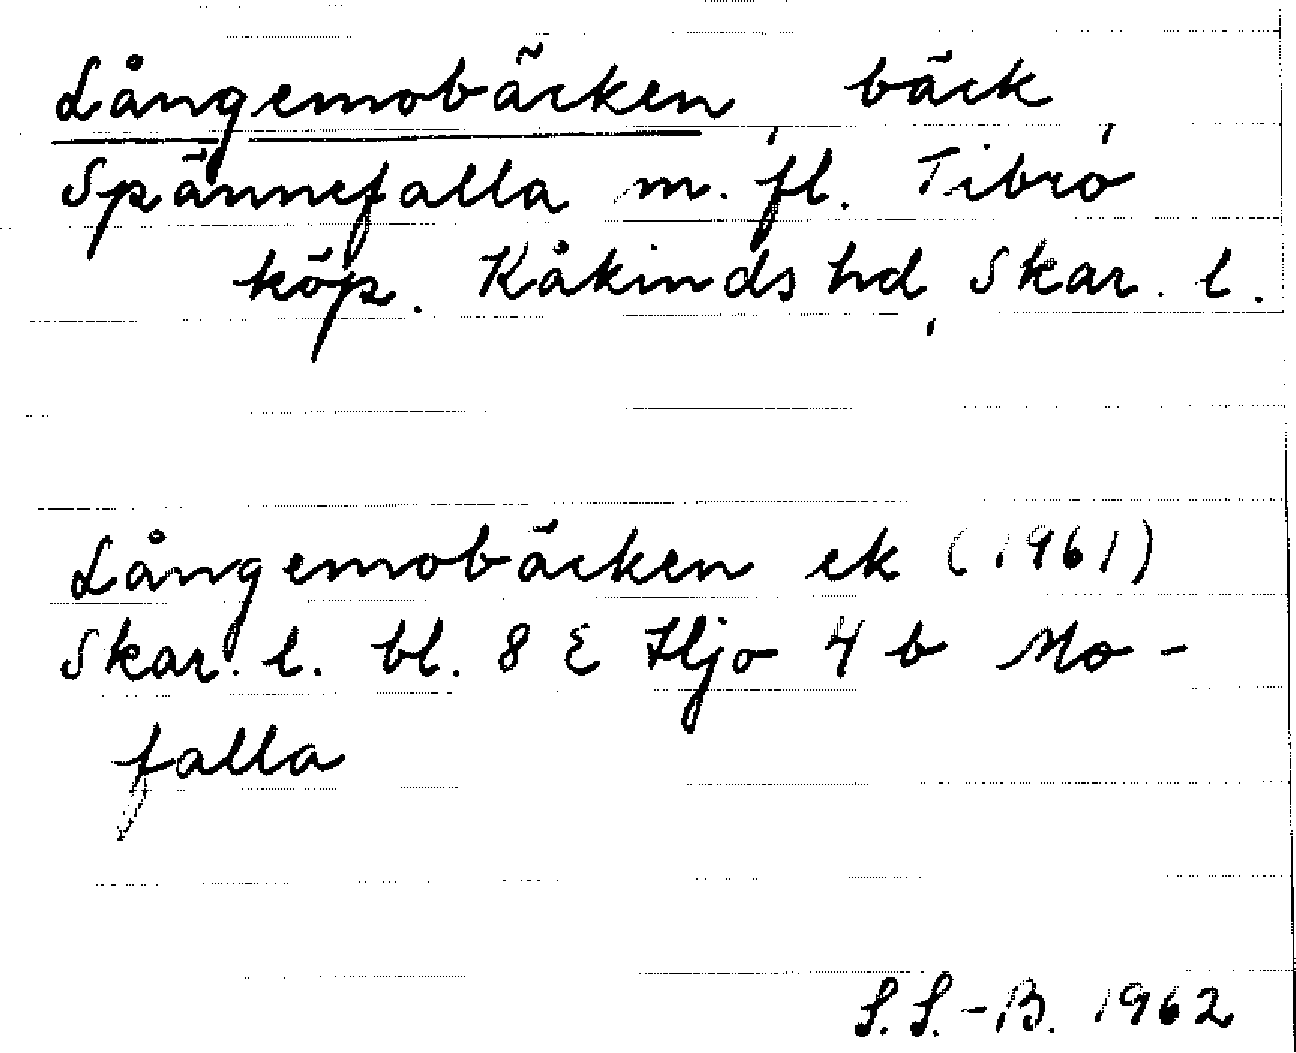 Långemobäcken, bäck,
Spännefalla m. fl. Tibro
köp. Kåkinds hd, Skar. l.
Långemobäcken ek (1961)
Skar. l. bl. 8 E Hjo 4 b Mo-
falla
S.S.-B. 1962